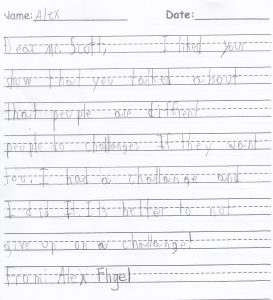 Name: Alex Date:
Dear mr. Scott, I liked your
show that you talked about
that people are diffrent
people do challanges If they want
too. I had a challange and
I did It. Its better to not
give up on a challange!
From: Alex Fligel